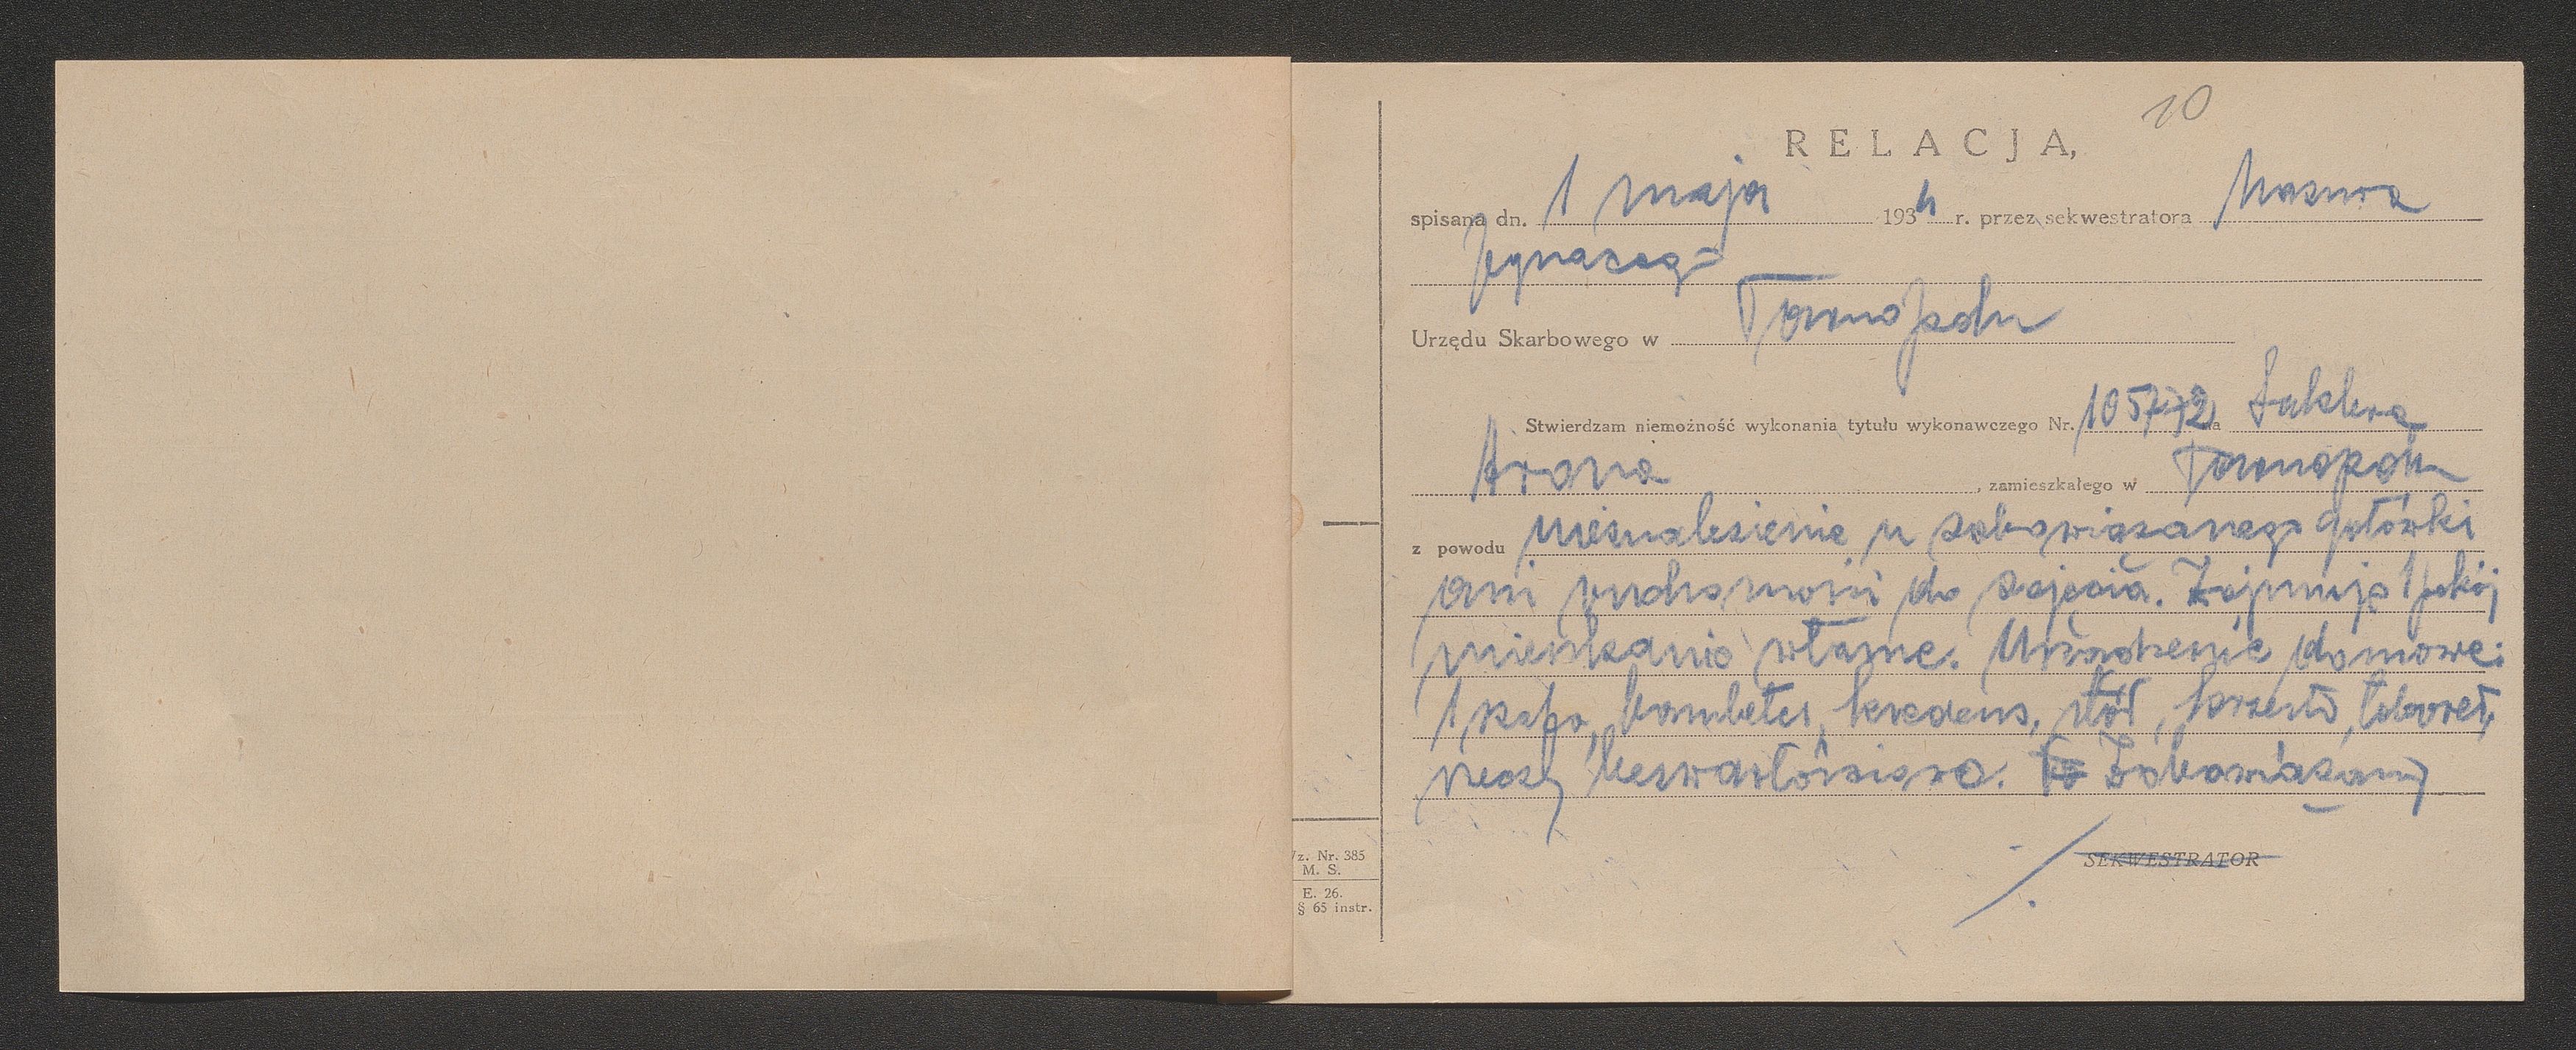 10
RELACJA,
spisana dn. 1 maja 1934 r. przez sekwestratora
Ignacego
Urzędu Skarbowego w Tarnopolu
Stwierdzam niemożność wykonania tytułu wykonawczego Nr. na
Arona, zamieszkałego w Tarnopolu
z powodu nieznalezienie u zobowiązanego gotówki
ani ruchomości do zajęcia. Zajmuje 1 pokój
mieszkanie własne. Urządzenie domowe:
1 szafa, bambetel, kredens, stół, krzesło, taboret,
rzeczy bezwartościowe. Zobowiązany
SEKWESTRATOR
/z. Nr. 385
M. S.
E. 26.
§ 65 instr.